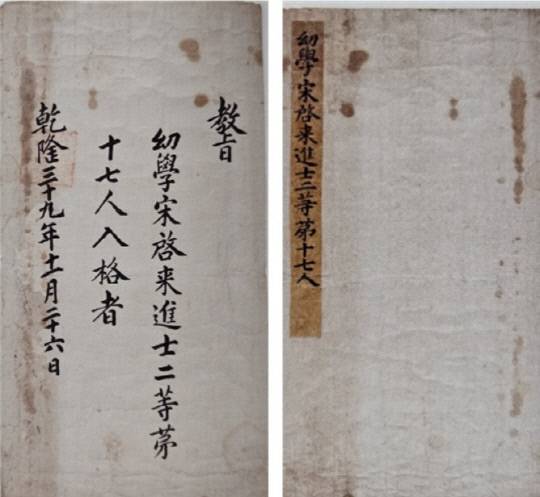 教旨
幼學宋啓来進士二等第
十七人入格者
乾隆三十九年十一月二十六日
幼學宋啓来進士二等第十七人